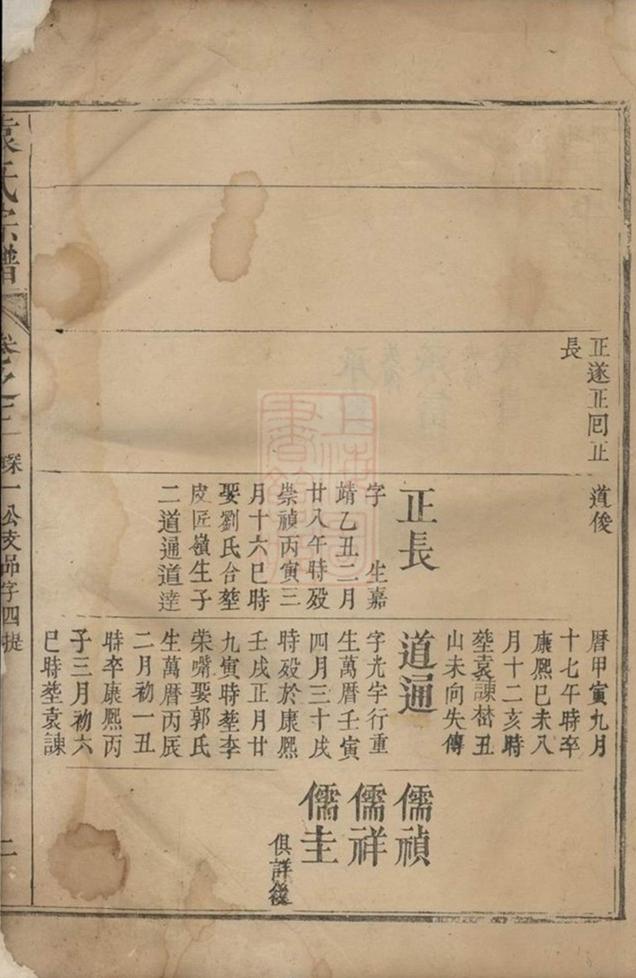 正遂正囘正
長
道俊
正長
字　生嘉
靖乙丑二月
廿八午時殁
崇禎丙寅三
月十六巳時
娶劉氏合塟
皮匠嶺生子
二道通道達
曆甲寅九月
十七午時卒
康熙己未八
月十二亥時
塟袁諫㙮丑
山未向失傳
道通
字光宇行重
生萬曆壬寅
四月三十戌
時殁於康熈
壬戌正月廿
九寅時塟李
柴嘴娶郭氏
生萬曆丙辰
二月初一丑
時卒康熈丙
子三月初六
巳時塟袁諫
儒禎
儒祥
儒圭
俱詳後
袁氏宗譜
卷之二
琛一公支昂字四提
二